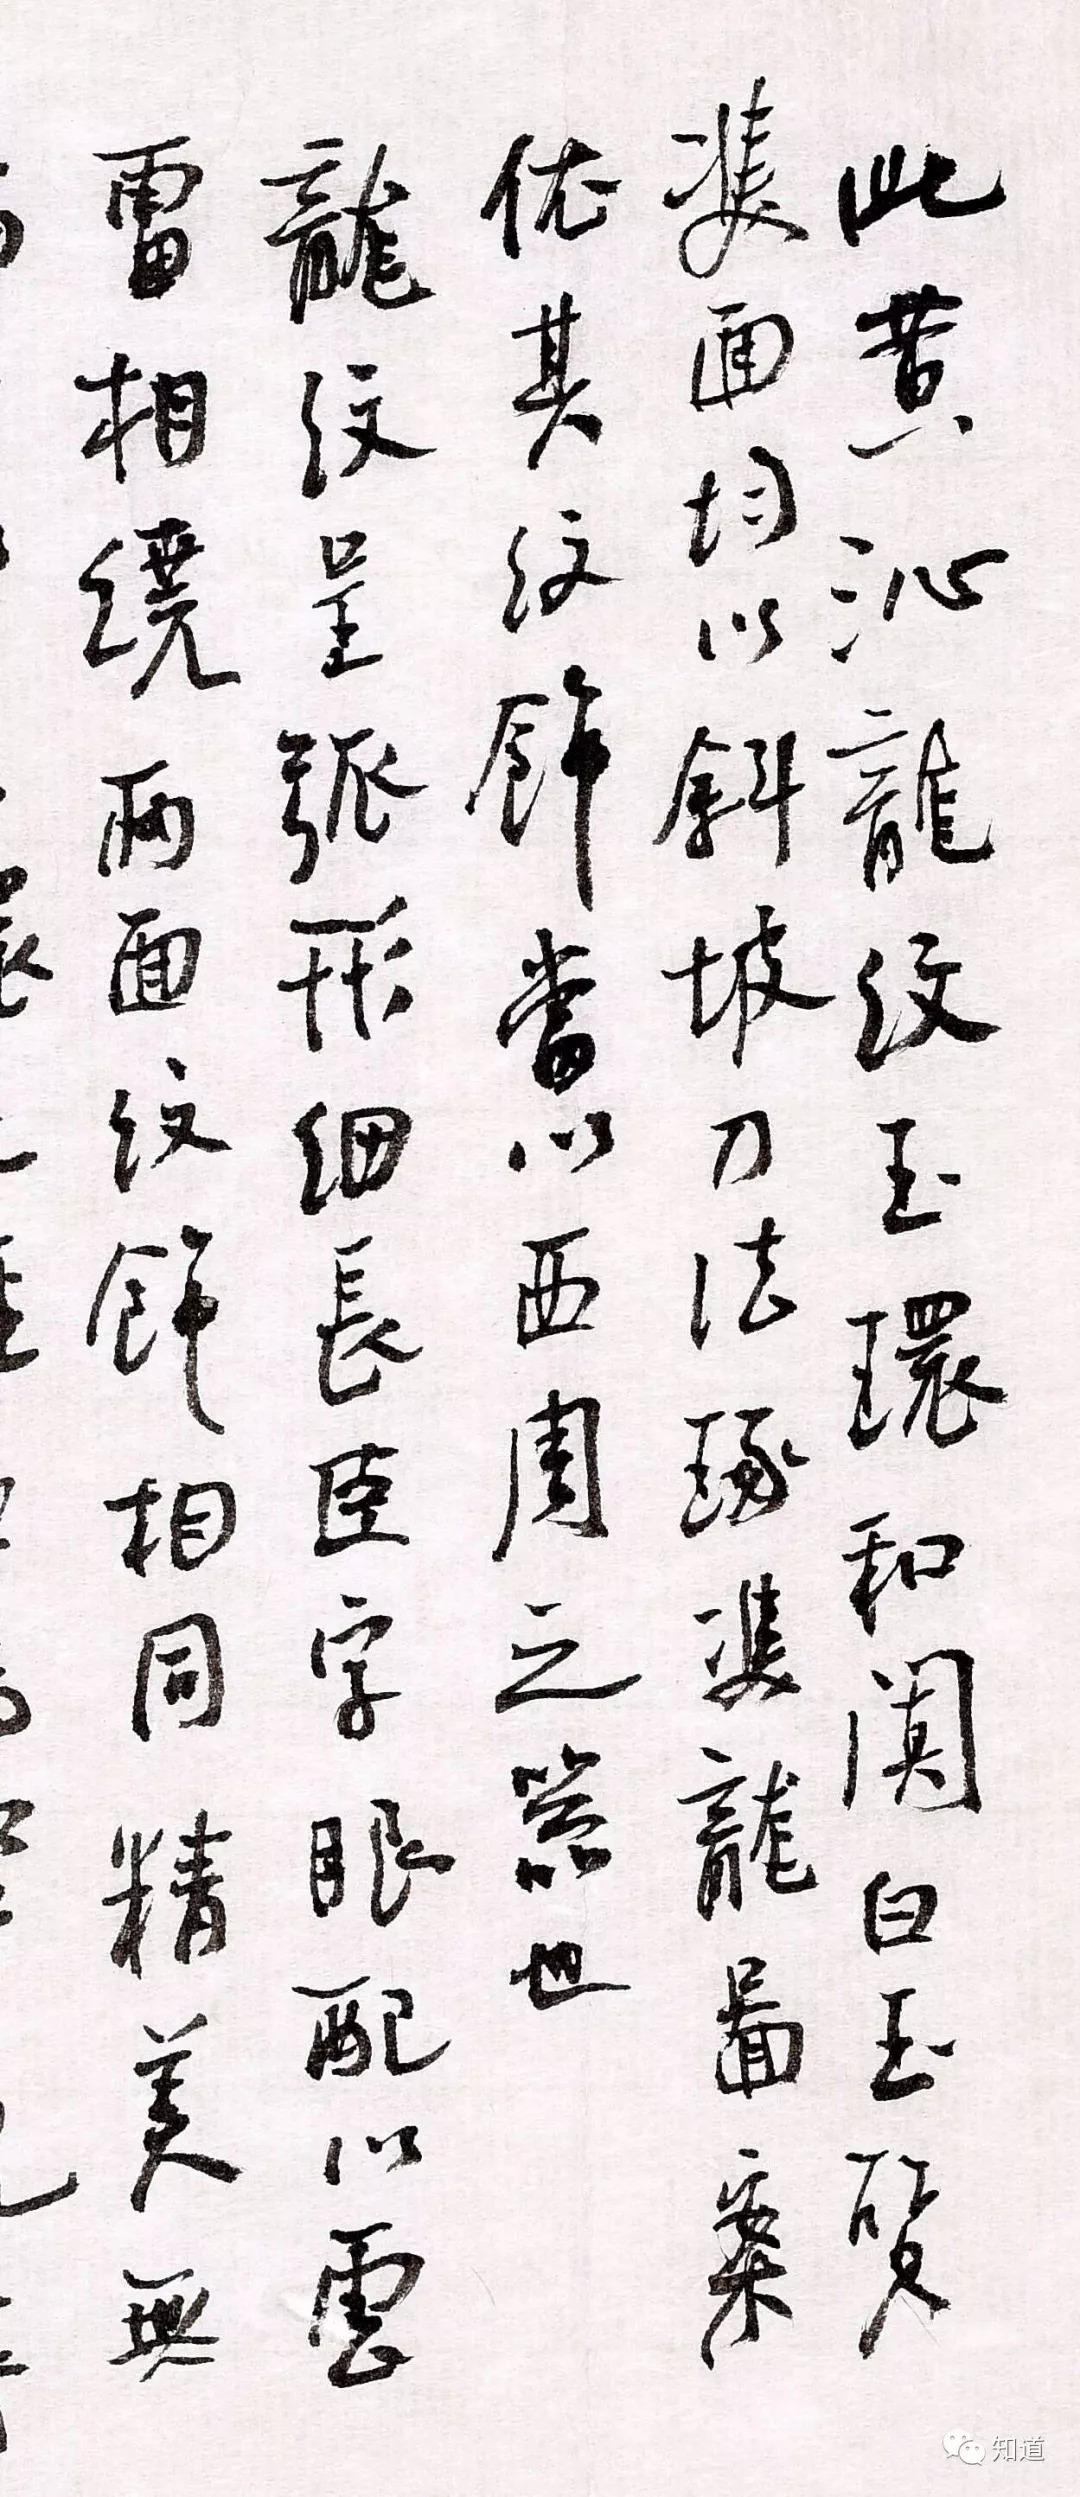 此黄沁龍紋玉環和闐白玉質
雙面均以斜坡刀法琢雙龍圖案
依其紋飾當以西周之器也
龍紋呈弧形細長臣字眼配以雲
雷相繞兩面紋飾相同精美無
知道